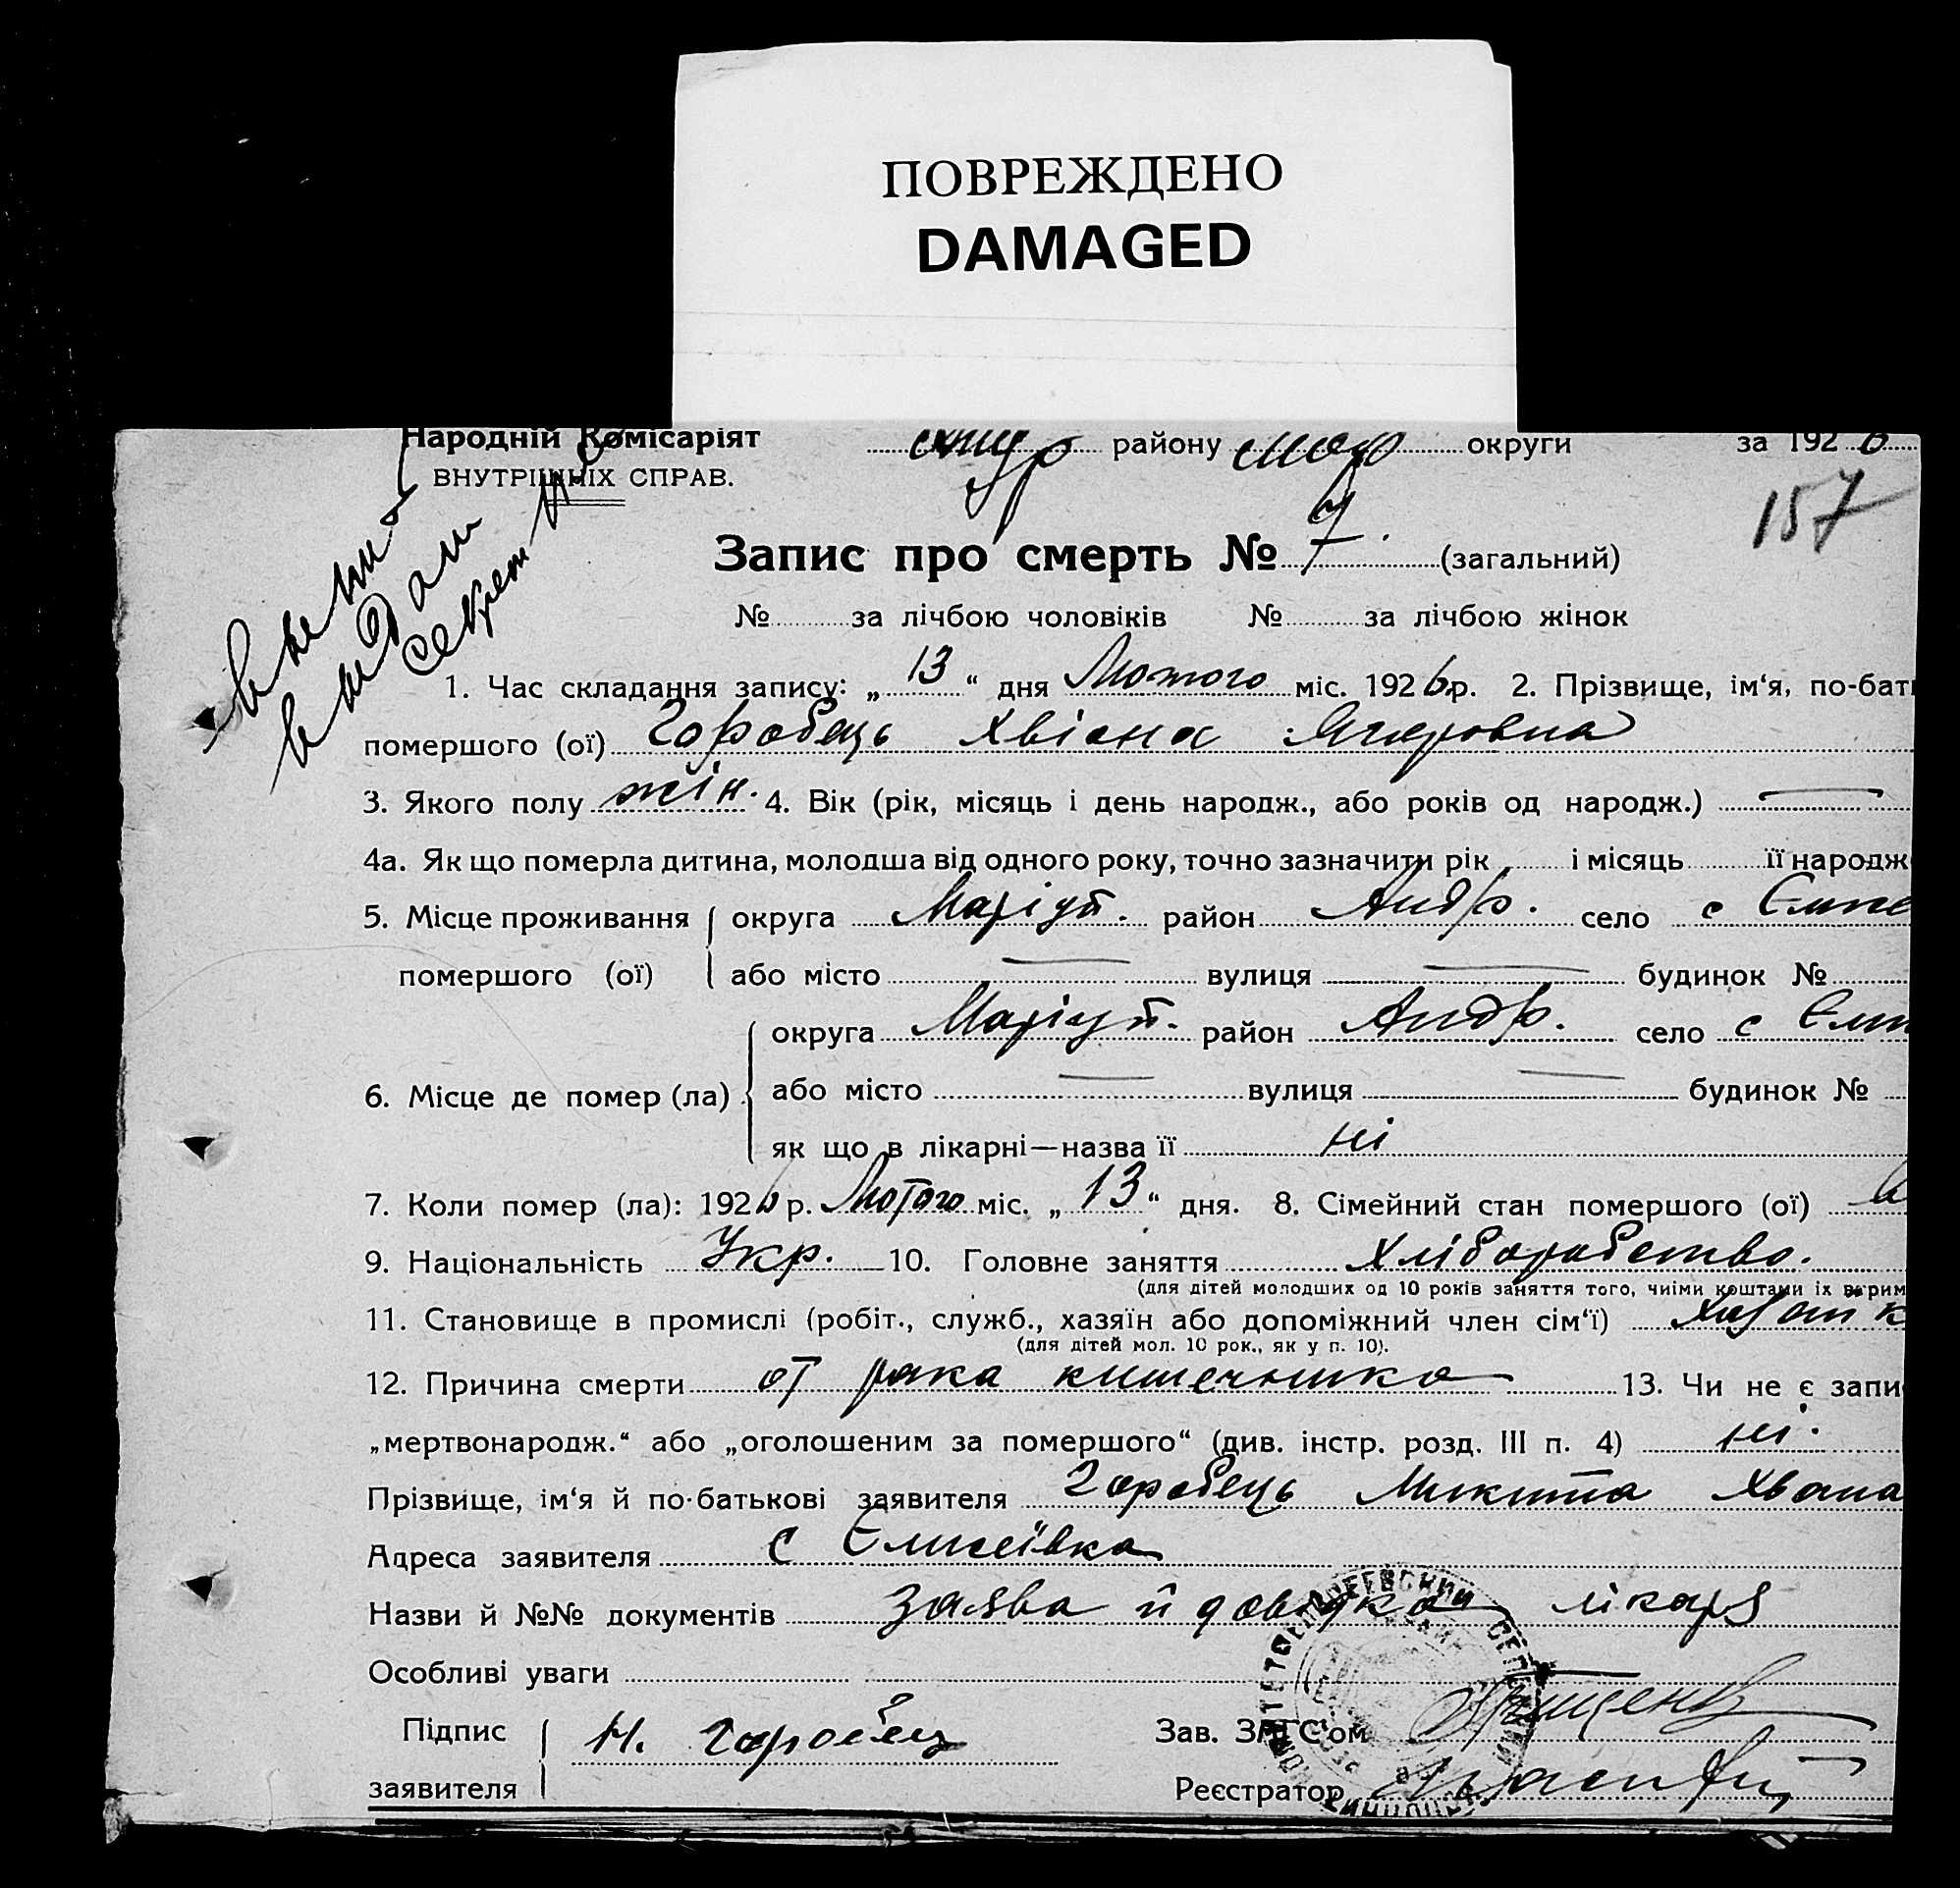 ПОВРЕЖДЕНО
DAMAGED
Народній Комісаріят району округи за 1926
ВНУТРІШНІХ СПРАВ.
157
Запис про смерть № 7. (загальний)
№ за лічбою чоловіків № за лічбою жінок
1. Час складання запису: „13“ дня Лютого міс. 1926 р. 2. Прізвище, ім‘я, по-бать
помершого (ої) Горобець Хвіона Ягоровна
3. Якого полу жін. 4. Вік (рік, місяць і день народж., або років од народж.) —
4а. Як що померла дитина, молодша від одного року, точно зазначити рік і місяць її народж
5. Місце проживання округа Маріуп. район Андр. село с Єлисе
помершого (ої) або місто — вулиця — будинок №
округа Маріуп. район Андр. село с Єлис
6. Місце де помер (ла) або місто — вулиця — будинок №
як що в лікарні—назва її ні
7. Коли помер (ла): 1926 р. Лютого міс. „13“ дня. 8. Сімейний стан помершого (ої) в
9. Національність Укр. 10. Головне заняття Хліборобство.
(для дітей молодших од 10 років заняття того, чиїми коштами їх втрим
11. Становище в промислі (робіт., служб., хазяїн або допоміжний член сім‘ї)
(для дітей мол. 10 рок., як у п. 10).
12. Причина смерти от рака кишечника 13. Чи не є запи
„мертвонародж.“ або „оголошеним за помершого“ (див. інстр. розд. III п. 4) ні.
Прізвище, ім‘я й по-батькові заявителя Горобець Микита Хвана
Адреса заявителя с Єлисеївка
Назви й №№ документів заява й довідка лікаря
Особливі уваги
Підпис Н. Горобец Зав. ЗАГС'ом
заявителя Реєстратор